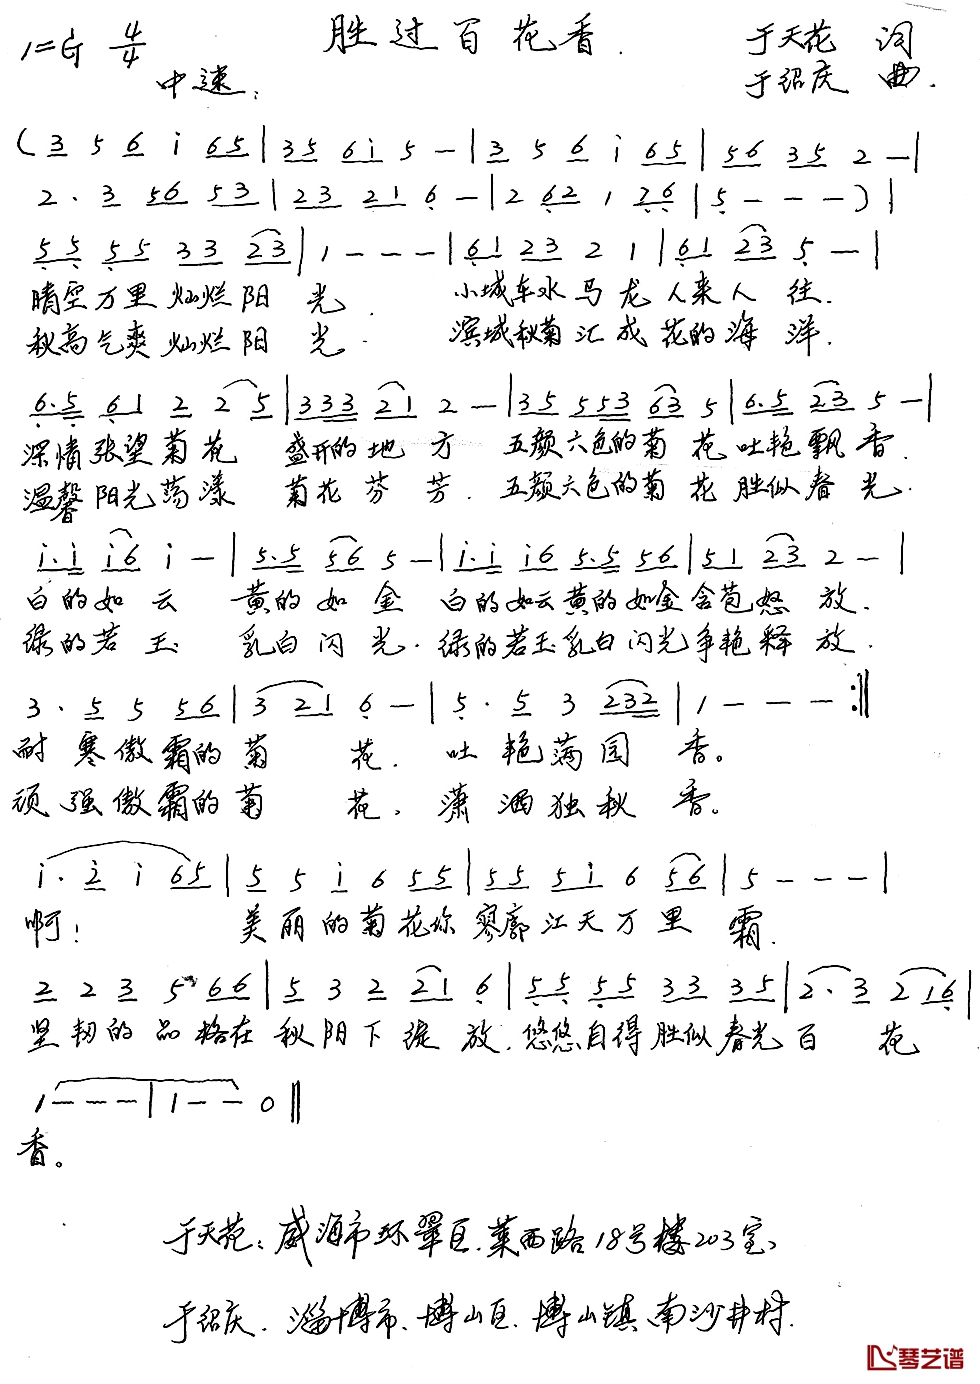 胜过百花香.
1=G 4/4
中速:
于天花 词
于绍庆 曲.
(3 5 6 i 65|35 6i 5 -|3 5 6 i 65|56 35 2 -|
2· 3 56 53|23 21 6 -|2 62 1 76|5 - - -)|
55 55 33 23|1 - - -|61 23 2 1|61 23 5 -|
晴空万里灿烂阳 光. 小城车水马龙人来人 往.
秋高气爽灿烂阳 光. 滨城秋菊汇成花的海 洋.
6·5 61 2 2 5|333 21 2 -|35 553 63 5|6·5 23 5 -|
深情张望菊花 盛开的地 方 五颜六色的菊 花吐艳飘香.
温馨阳光荡漾 菊花芬 芳. 五颜六色的菊 花胜似春光.
i·i i6 i -|5·5 56 5 -|i·i i6 5·5 56|51 23 2 -|
白的如云 黄的如金 白的如云黄的如金含苞怒 放.
绿的若玉 乳白闪光. 绿的若玉乳白闪光争艳释 放.
3· 5 5 56|3 21 6 -|5· 5 3 232|1 - - - :‖
耐寒傲霜的菊 花. 吐艳满园 香。
顽强傲霜的菊 花, 潇洒独秋 香。
i· 2 i 65|5 5 i 6 55|55 5i 6 56|5 - - -|
啊! 美丽的菊花你寥廓江天万里 霜.
2 2 3 5 66|5 3 2 21 6|55 55 33 35|2· 3 2 16|
坚韧的品格在秋阳下绽 放. 悠悠自得胜似春光百 花
1 - - -|1 - - 0‖
香。
于天花: 威海市环翠区.莱西路18号楼203室
于绍庆. 淄博市、博山区、博山镇、南沙井村.
琴艺谱